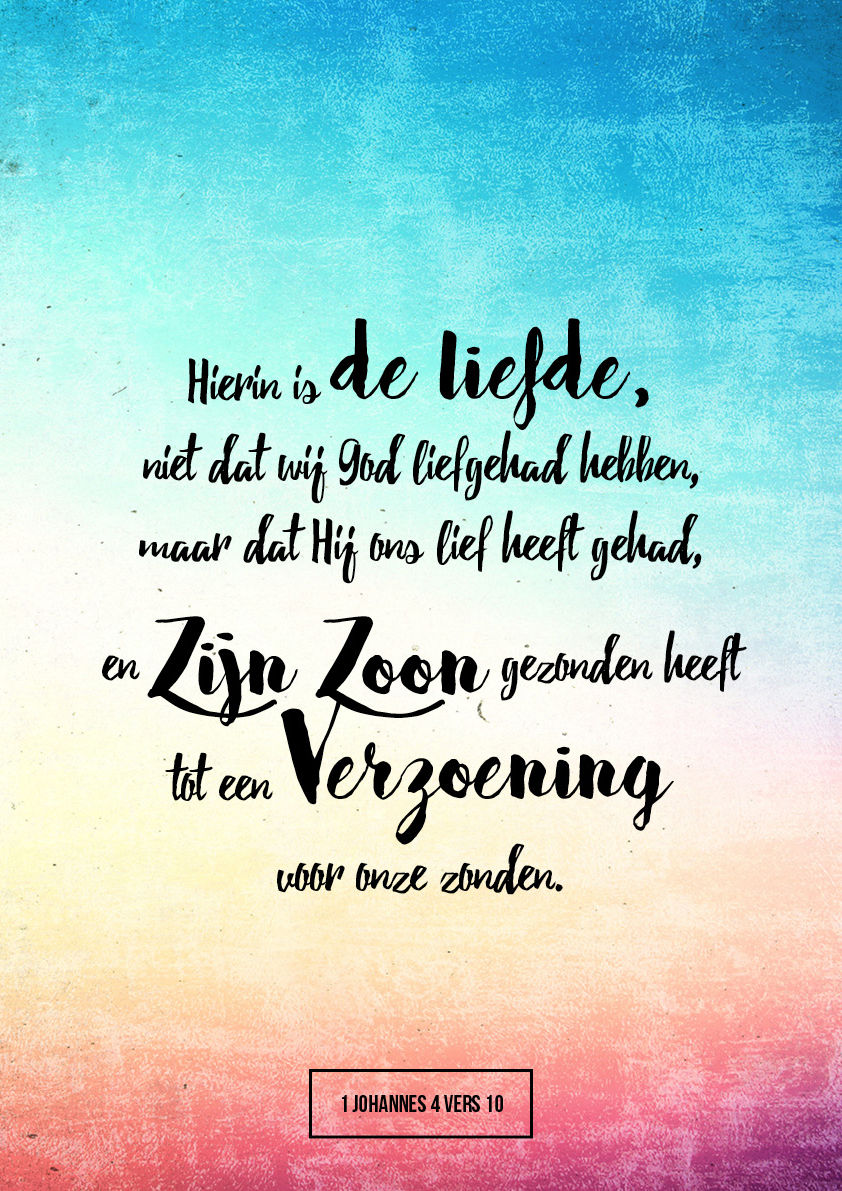 Hierin is de liefde,
niet dat wij God liefgehad hebben,
maar dat Hij ons lief heeft gehad,
en Zijn Zoon gezonden heeft
tot een Verzoening
voor onze zonden.
1 JOHANNES 4 VERS 10